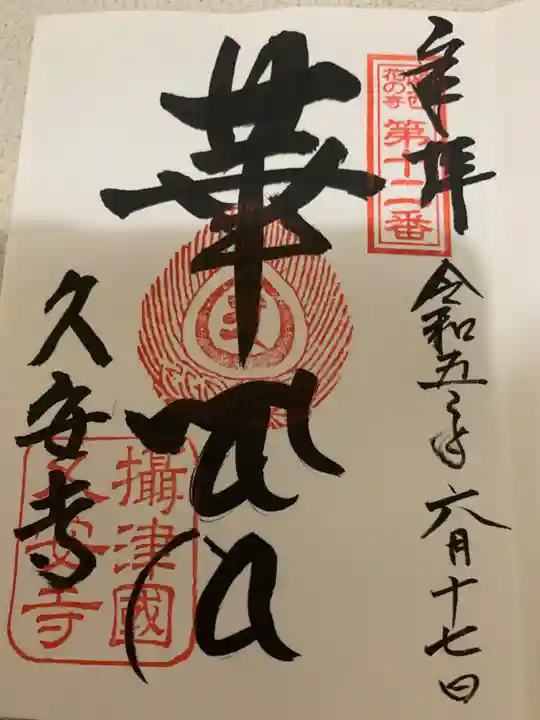 奉拝
関西
花の寺
第十二番
令和五年六月十七日
華
久安寺
攝津國
久安寺